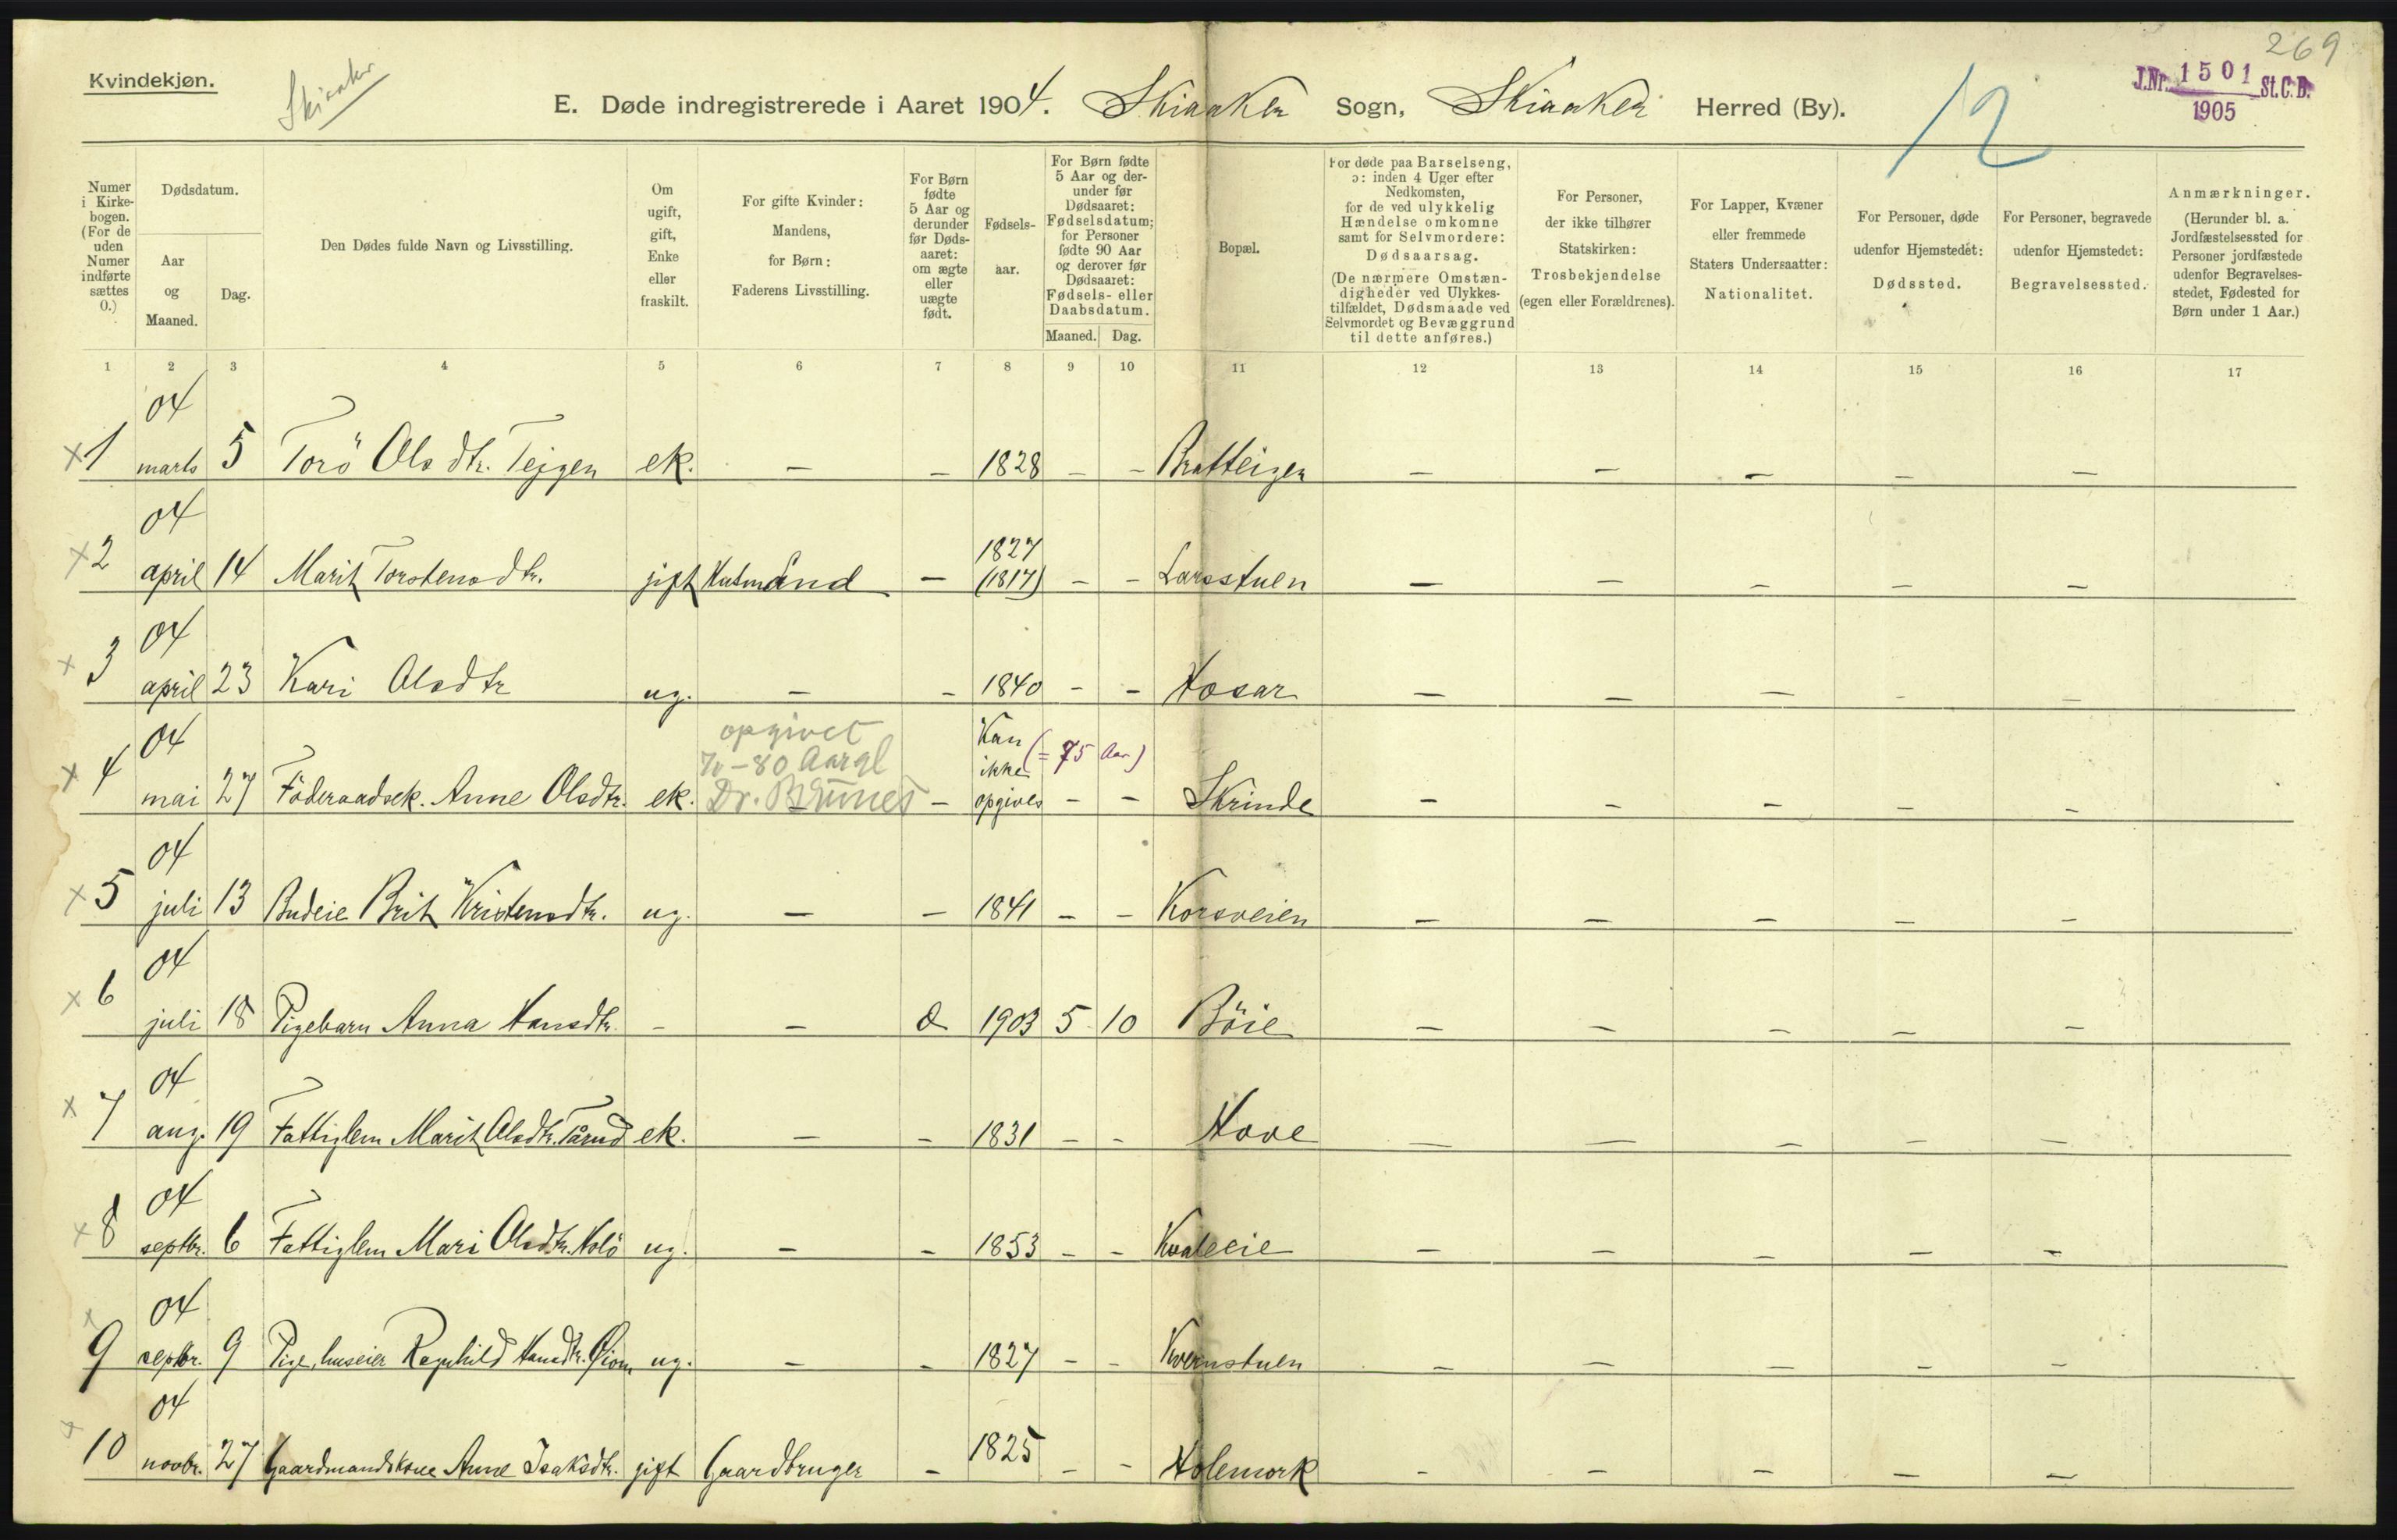 269
Kvindekjøn.
Skiaaker
E. Døde indregistrerede i Aaret 1904. Skiaaker Sogn, Skiaaker Herred (By).
12
J.Nr. 1501 St.C.B.
1905
Numer i Kirke-bogen. (For de uden Numer indførte sættes 0.)
Dødsdatum.
Aar og Maaned.
Dag.
Den Dødes fulde Navn og Livsstilling.
Om ugift, gift, Enke eller fraskilt.
For gifte Kvinder: Mandens, for Børn: Faderens Livsstilling.
For Børn fødte 5 Aar og derunder før Døds-aaret: om ægte eller uægte født.
Fødsels-aar.
For Børn fødte 5 Aar og der-under før Dødsaaret: Fødselsdatum; for Personer fødte 90 Aar og derover før Dødsaaret: Fødsels- eller Daabsdatum.
Maaned. Dag.
Bopæl.
For døde paa Barselseng, ɔ: inden 4 Uger efter Nedkomsten, for de ved ulykkelig Hændelse omkomne samt for Selvmordere: Dødsaarsag. (De nærmere Omstæn-digheder ved Ulykkes-tilfældet, Dødsmaade ved Selvmordet og Bevæggrund til dette anføres.)
For Personer, der ikke tilhører Statskirken: Trosbekjendelse (egen eller Forældrenes).
For Lapper, Kvæner eller fremmede Staters Undersaatter: Nationalitet.
For Personer, døde udenfor Hjemstedet: Dødssted.
For Personer, begravede udenfor Hjemstedet: Begravelsessted.
Anmærkninger. (Herunder bl. a. Jordfæstelsessted for Personer jordfæstede udenfor Begravelses-stedet, Fødested for Børn under 1 Aar.)
1 2 3 4 5 6 7 8 9 10 11 12 13 14 15 16 17
04
x 1 marts 5 Torö Olsdtr. Tejgen ek. – – 1828 – – Bratteigen – – – – –
04
x 2 april 14 Marit Torstensdtr. gift Husmand – 1827 (1817) – – Larsstuen – – – – –
04
x 3 april 23 Kari Olsdtr ug. – – 1840 – – Hosar – – – – –
04 opgivet 70–80 Aargl Kan ikke (= 75 Aar)
x 4 mai 27 Föderaadsek. Anne Olsdtr. ek. Dr. – opgives – – Skrinde – – – – –
04
x 5 juli 13 Budeie Brit Kristensdtr. ug. – – 1841 – – Korsveien – – – – –
04
x 6 juli 18 Pigebarn Anna Hansdtr. – – 1903 5 10 Böie – – – – –
04
x 7 aug. 19 Fattiglem Marit Olsdtr. ek. – – 1831 – – Hove – – – – –
04
x 8 septbr. 6 Fattiglem Mari Olsdtr. Holö ug. – – 1853 – – – – – – –
04
x 9 septbr. 9 Pige, huseier Ragnhild Hansdtr. ug. – – 1827 – – Kvernstuen – – – – –
04
x 10 novbr. 27 Gaardmandskone Anne Isaksdtr. gift Gaardbruger – 1825 – – Holemork – – – – –